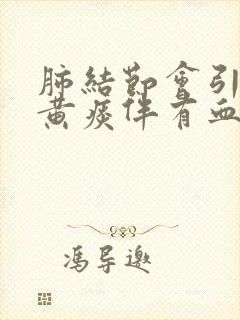 肺結節會引
黃痰伴有血
馮导邀